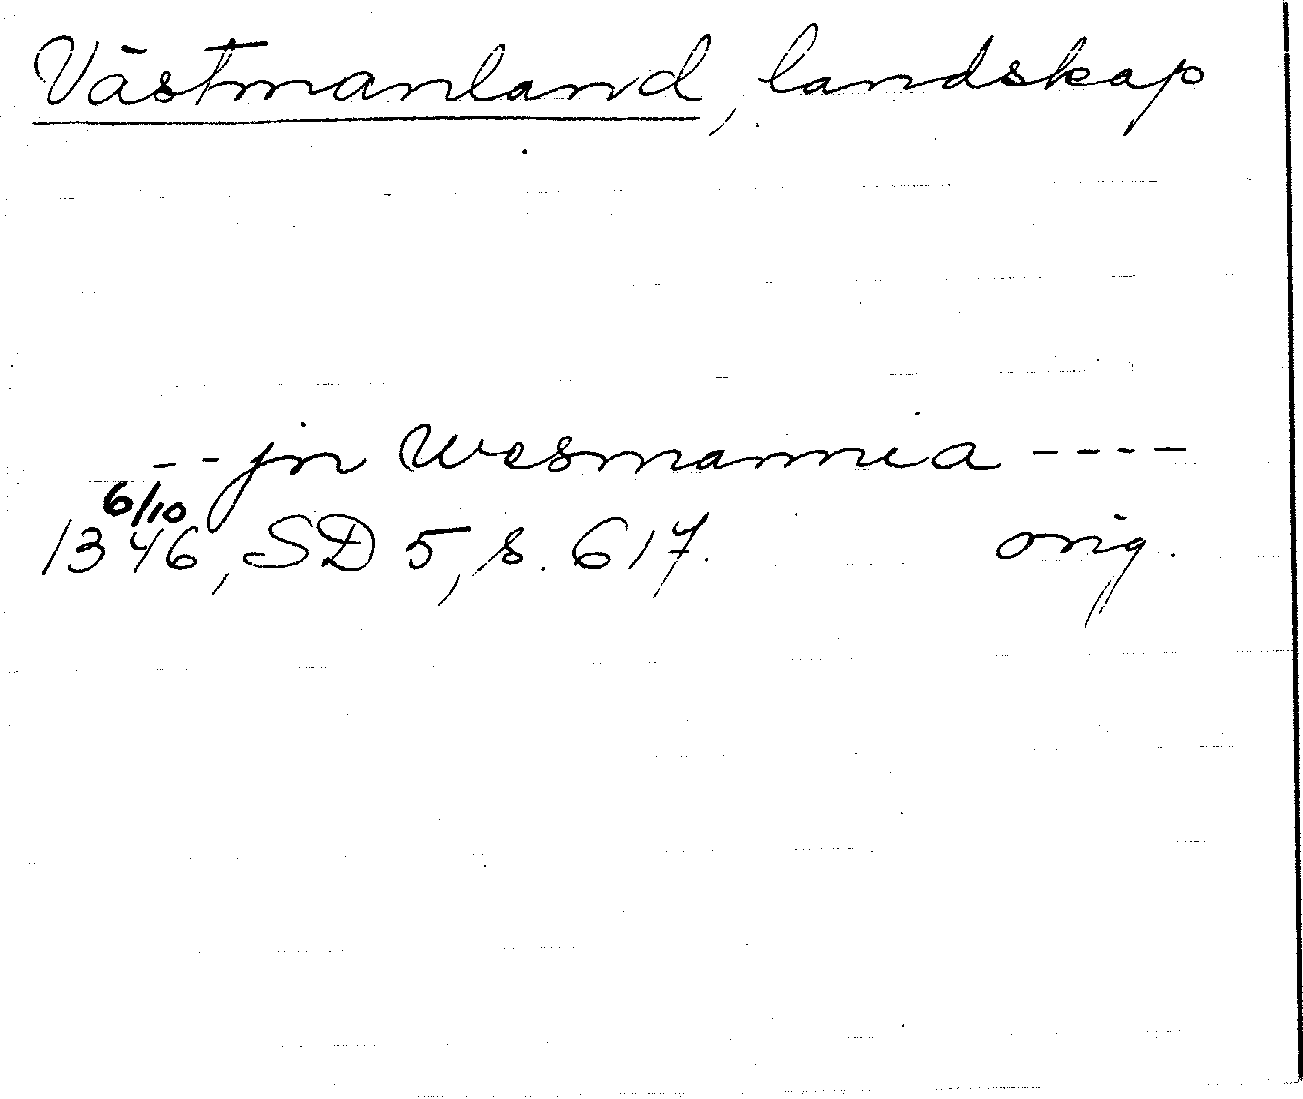 Västmanland, landskap
-- jn Wesmannia ----
6/10
1346, SD 5, s. 617. orig.